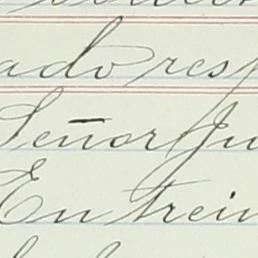 ado res
Señor Ju
En trein